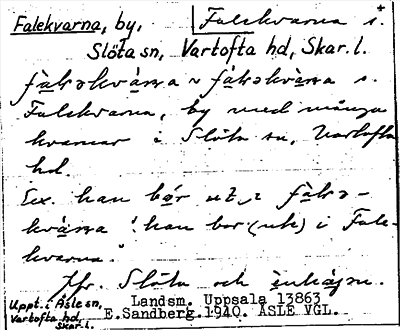 Falekvarna, by, Falekvarna s.
Slöta sn, Vartofta hd, Skar. l.
fàləkvàɳa ~ fáləkvàɳa s.
Falekvarna, by med många
kvarnar i Slöta sn, Vartofta
hd.
Ex. han bór ut i fàlə-
kvàɳa 'han bor (ute) i Fale-
kvarna.'
Jfr. Slöta och
Uppt. i Åsle sn,
Vartofta hd,
Skar. l.
Landsm. Uppsala 13863
E.Sandberg.1940. ÅSLE VGL.